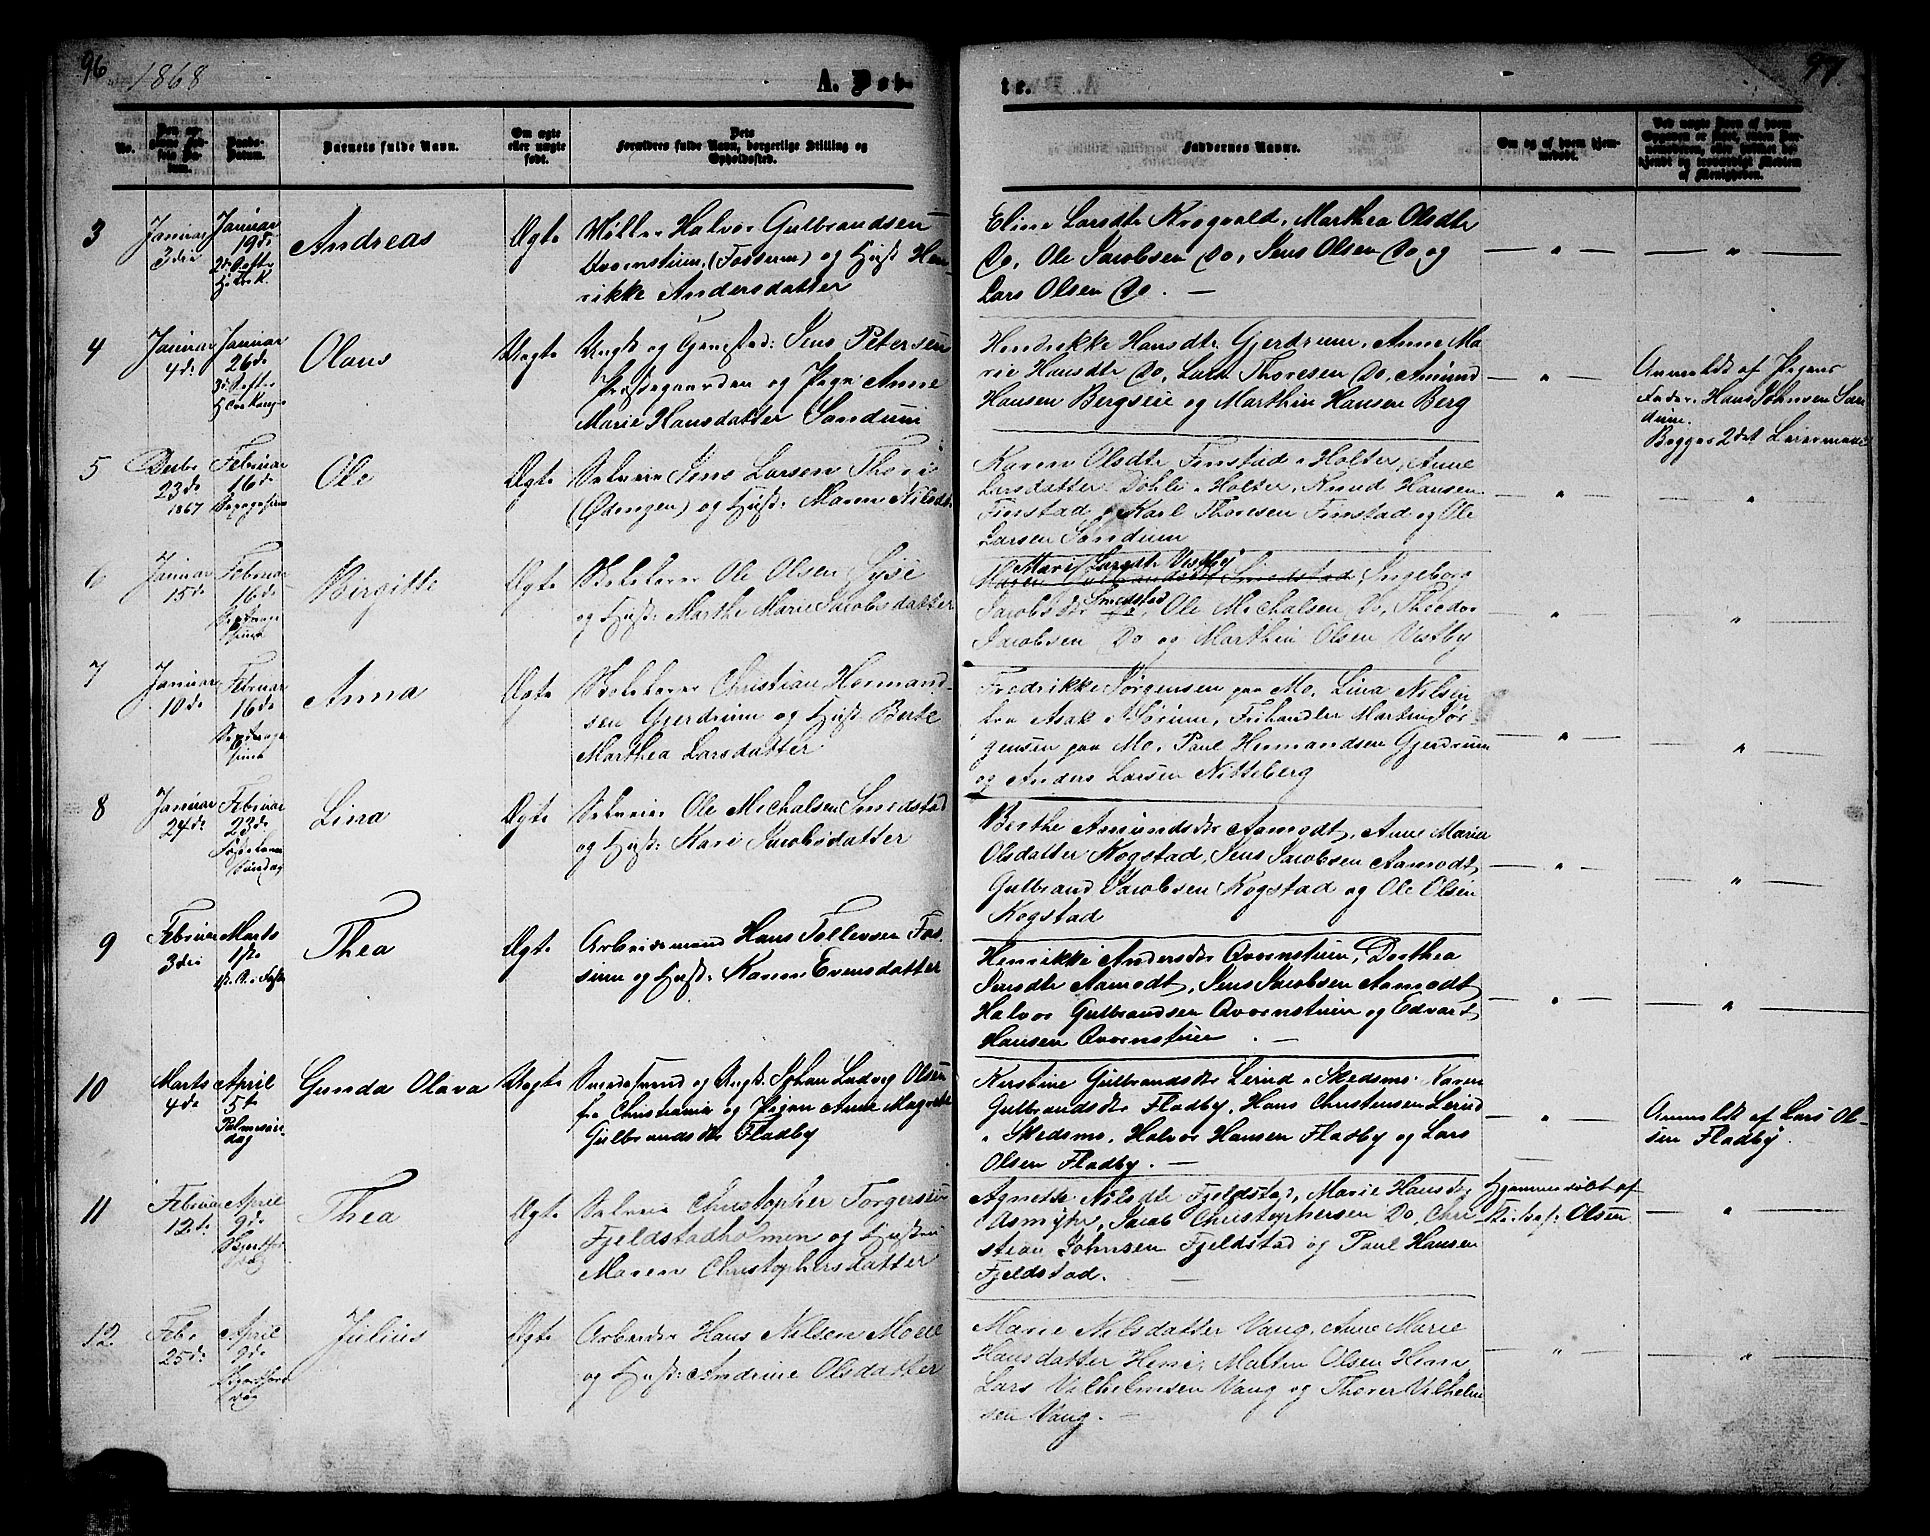 96
1868
A. Døb-
te.
97.
No.
Daabs-
Datum.
Barnets fulde Navn.
Om ægte
eller uægte
født.
Dets
Forældres fulde Navn, borgerlige Stilling og
Opholdssted.
Faddernes Navne.
Om og af hvem hjem-
medøbt.
3
Januar
3die
Januar
19de
Andreas
Ægte
Møller Halvor Gulbrandsen
Qvernstuen (Fossum) og Hust Hen-
rikke Andersdatter
Eline Larsdtr Krogvold, Marthea Olsdtr
Do, Ole Jacobsen Do, Jens Olsen Do og
Lars Olsen Do. —
4
Januar
4de
Januar
26de
Olaus
Uægte
Ungk og Jens Petersen
Præstegaarden og Pige Anne
Marie Hansdatter Sandum
Hendrikke Hansdtr Gjerdrum, Anne Ma
rie Hansdtr Do, Lars Thoresen Do, Amund
Hansen Bergseie og Marthin Hansen Berg
Anmeldt af Pigens
Fader Hans Johnsen San
dum.
Begges 2det Leiermaal
5
Decbr
23de
1867
Februar
16de
Ole
Ægte
Selveier Jens Larsen
og Hust: Maren Nilsdtr
Karen Olsdtr Finstad i Holter, Anne
Larsdatter Dohli i Holter, Knud Hansen
Finstad, Karl Thoresen Finstad og Ole
Larsen Sandum
6
Januar
15de
Februar
16de
Birgitte
Ægte
Ole Olsen
og Hust: Marthe Marie Jacobsdatter
Marie Larsdtr Vestby
Smedstad, Ingeborg
Jacobsdtr Smedstad, Ole Michalsen Do, Theodor
Jacobsen Do og Marthin Olsen Vestby
7
Januar
10de
Februar
16de
Anna
Ægte
Christian Hermand-
sen Gjerdrum og Hust Berte
Marthea Larsdatter
Fredrikke Jørgensen paa Mo, Lina Nilsen
fra Asak i Sørum, Frihandler Martin Jør-
gensen paa Mo, Paul Hermandsen Gjerdrum
og Anders Larsen Nitteberg
8
Januar
24de
Februar
23de
Fastelavns
Søndag
Lina
Ægte
Selveier Ole Michalsen Smedstad
og Hust: Kari Jacobsdatter
Berthe Amundsdtr Aamodt, Anne Marie
Olsdatter Kogstad, Jens Jacobsen Aamodt,
Gulbrand Jacobsen Kogstad og Ole Olsen
Kogstad
9
Februar
3die
Marts
1ste
Thea
Ægte
Arbeidsmand Hans Tollevsen Fos-
sum og Hust: Karen Evensdatter
Henrikke Andersdtr Qvernstuen, Dorthea
Jensdtr Aamodt, Jens Jacobsen Aamodt
Halvor Gulbrandsen Qvernstuen og Edvart
Hansen Qvernstuen. —
10
Marts
4de
April
5te
Palmesøn-
dag
Gunda Olava
Uægte
Smedesvend og Ungk. Johan Ludvig Olsen
fra Christiania og Pigen Anne Magrethe
Gulbrandsdtr Fladby
Kirstine Gulbrandsdtr Leirud i Skedsmo. Karen
Gulbrandsdtr Fladby, Hans Christensen Leirud
i Skedsmo, Halvor Hansen Fladby og Lars
Olsen Fladby. —
Anmeldt af Lars Ol-
sen Fladby.
11
Februar
12de
April
9de
Thea
Ægte
Selveier Christopher Torgersen
Fjeldstadholmen og Hustru
Maren Christophersdatter
Agnette Nilsdtr Fjeldstad, Marie Hansdtr
Asmyhr, Jacob Christophersen Do, Chri
stian Johnsen Fjeldstad og Paul Hansen
Fjeldstad. —
Hjemmedøbt af
Olsen
12
Febr
25de
April
9de
Julius
Ægte
Arbeider Hans Nilsen Moeie
og Hust: Andrine Olsdatter
Marie Nilsdatter Vang, Anne Marie
Hansdatter Heni, Morten Olsen Heni,
Lars Vilhelmsen Vang og Thorer Vilhelm
sen Vang. —